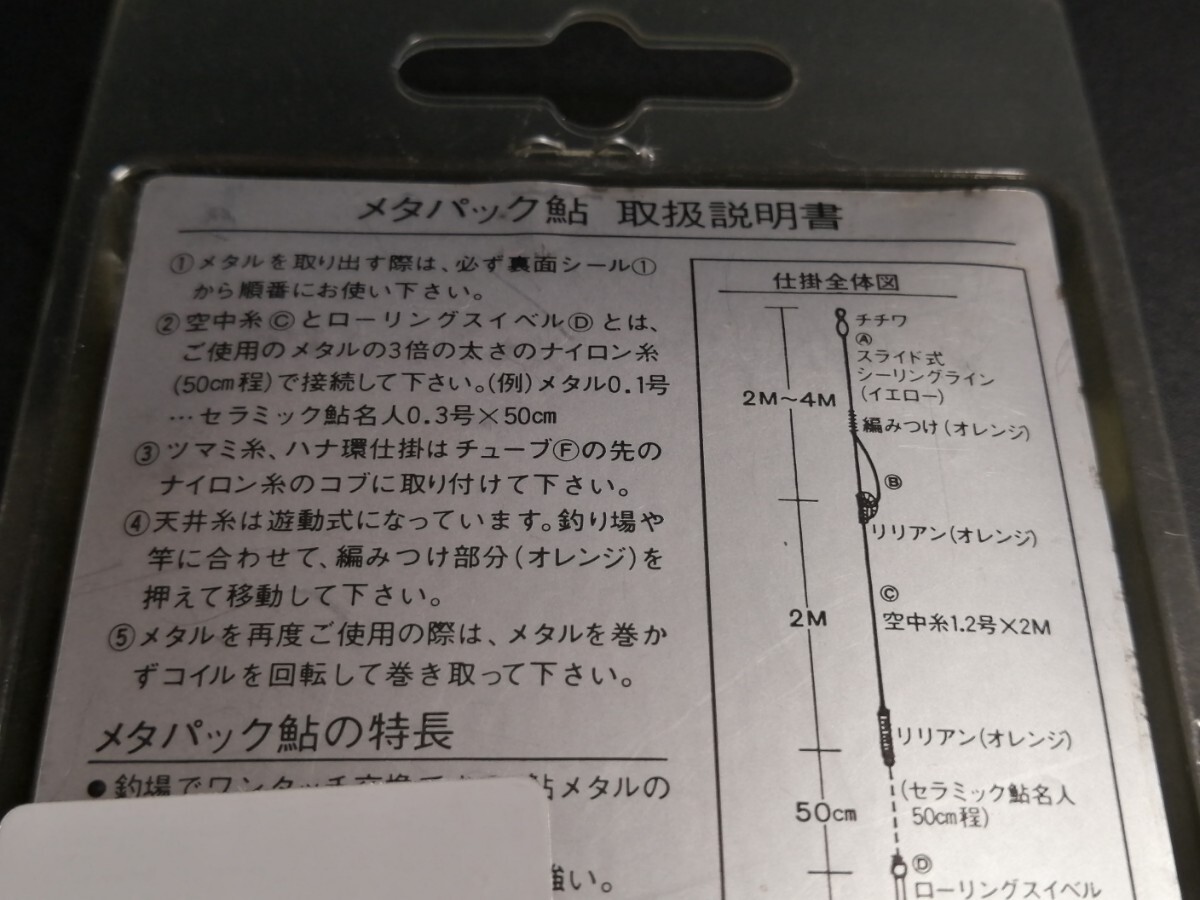 メタパック鮎 取扱説明書
①メタルを取り出す際は、必ず裏面シール①
から順番にお使い下さい。
②空中糸Ⓒとローリングスイベルⓓとは、
ご使用のメタルの3倍の太さのナイロン糸
(50cm程)で接続して下さい。(例)メタル0.1号
…セラミック鮎名人0.3号×50cm
③ツマミ糸、ハナ環仕掛はチューブⒻの先の
ナイロン糸のコブに取り付けて下さい。
④天井糸は遊動式になっています。釣り場や
竿に合わせて、編みつけ部分(オレンジ)を
押えて移動して下さい。
⑤メタルを再度ご使用の際は、メタルを巻か
ずコイルを回転して巻き取って下さい。
メタパック鮎の特長
●釣場でワンタッチ交換
鮎メタルの
強い。
仕掛全体図
チチワ
Ⓐ
スライド式
シーリングライン
(イエロー)
2M〜4M
編みつけ(オレンジ)
Ⓑ
リリアン(オレンジ)
Ⓒ
2M
空中糸1.2号×2M
リリアン(オレンジ)
(セラミック鮎名人
50cm程)
50cm
Ⓓ
ローリングスイベル